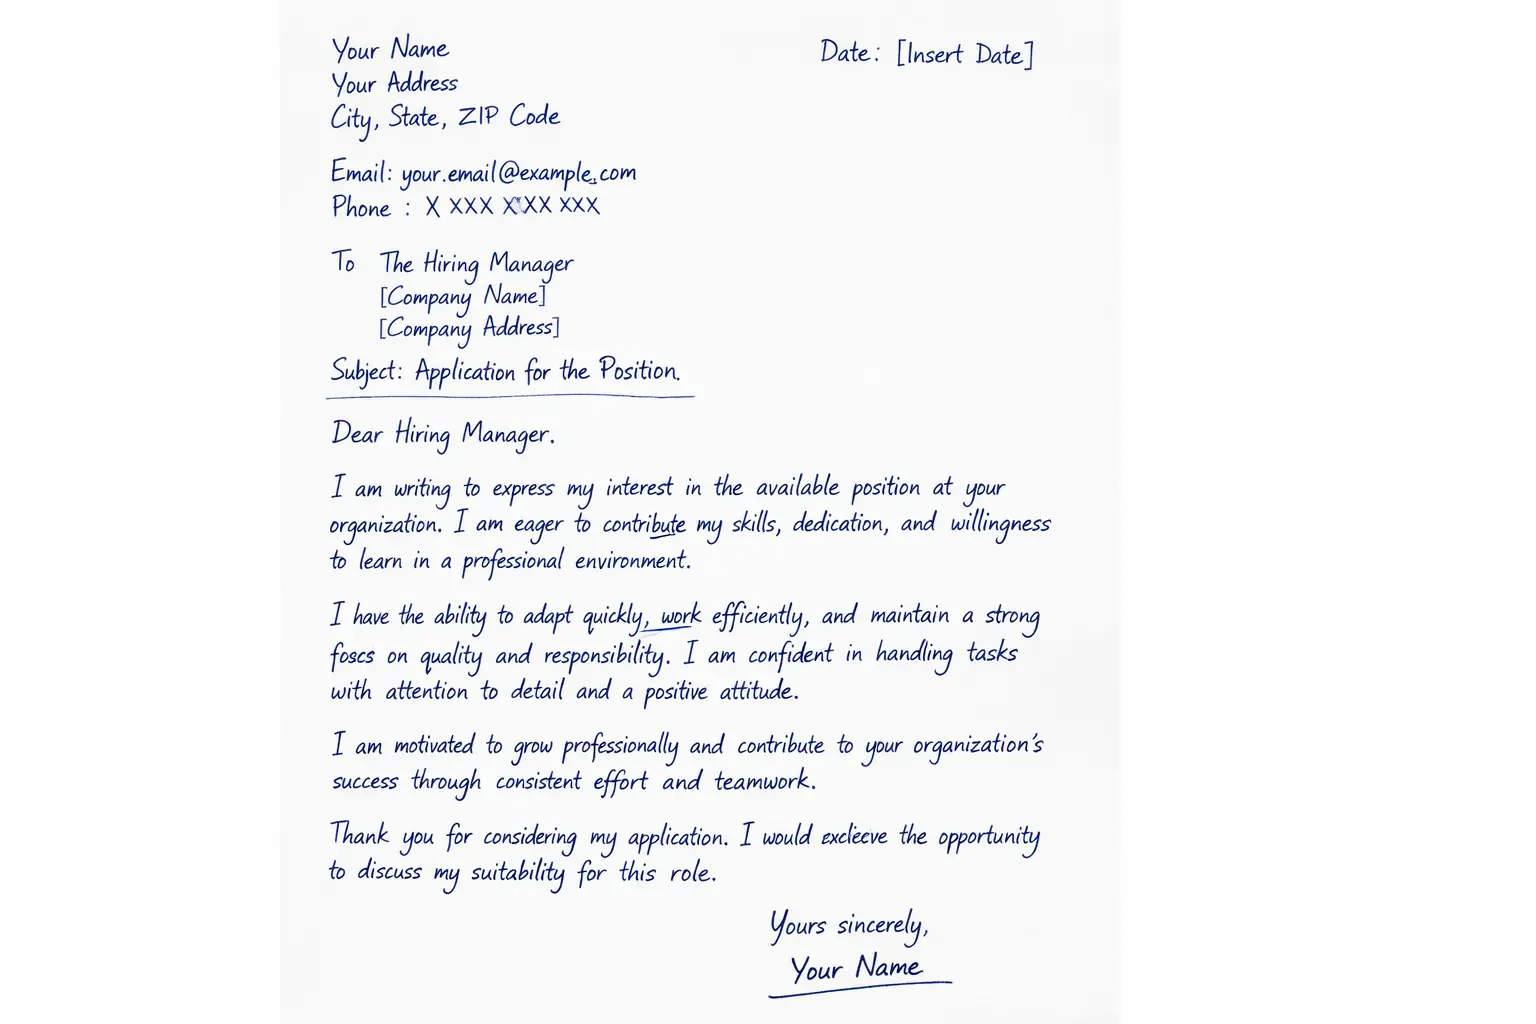 Your Name
Date: [Insert Date]
Your Address
City, State, ZIP Code
Email: your.email@example.com
Phone : X XXX XXXX XXX
To The Hiring Manager
[Company Name]
[Company Address]
Subject: Application for the Position.
Dear Hiring Manager.
I am writing to express my interest in the available position at your
organization. I am eager to contribute my skills, dedication, and willingness
to learn in a professional environment.
I have the ability to adapt quickly, work efficiently, and maintain a strong
foscs on quality and responsibility. I am confident in handling tasks
with attention to detail and a positive attitude.
I am motivated to grow professionally and contribute to your organization's
success through consistent effort and teamwork.
Thank you for considering my application. I would the opportunity
to discuss my suitability for this role.
Yours sincerely,
Your Name